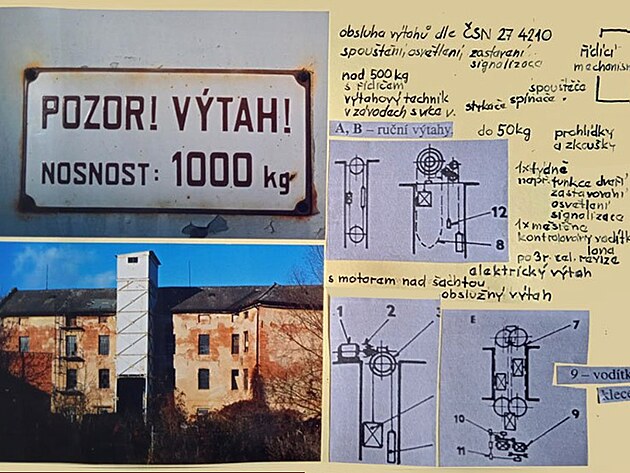 POZOR! VÝTAH!
NOSNOST: 1000 kg
obsluha výtahů dle ČSN 27 4210
spouštění, osvětlení, zastavení
signalizace
nad 500 kg
s řidičem
výtahový technik
v závodech
řídící
mechanism
spouštěče
stykače spínače
A, B – ruční výtahy.
do 50kg
prohlídky
a zkoušky
1x týdně
např. funkce dveří
zastavování
osvětlení
signalizace
1x měsíčně
kontrolovány vodítk
lana
po 3r. revize
elektrický výtah
s motorem nad šachtou
obslužný výtah
12
8
1
2
3
E
7
10
9
11
9 – vodítk
klece